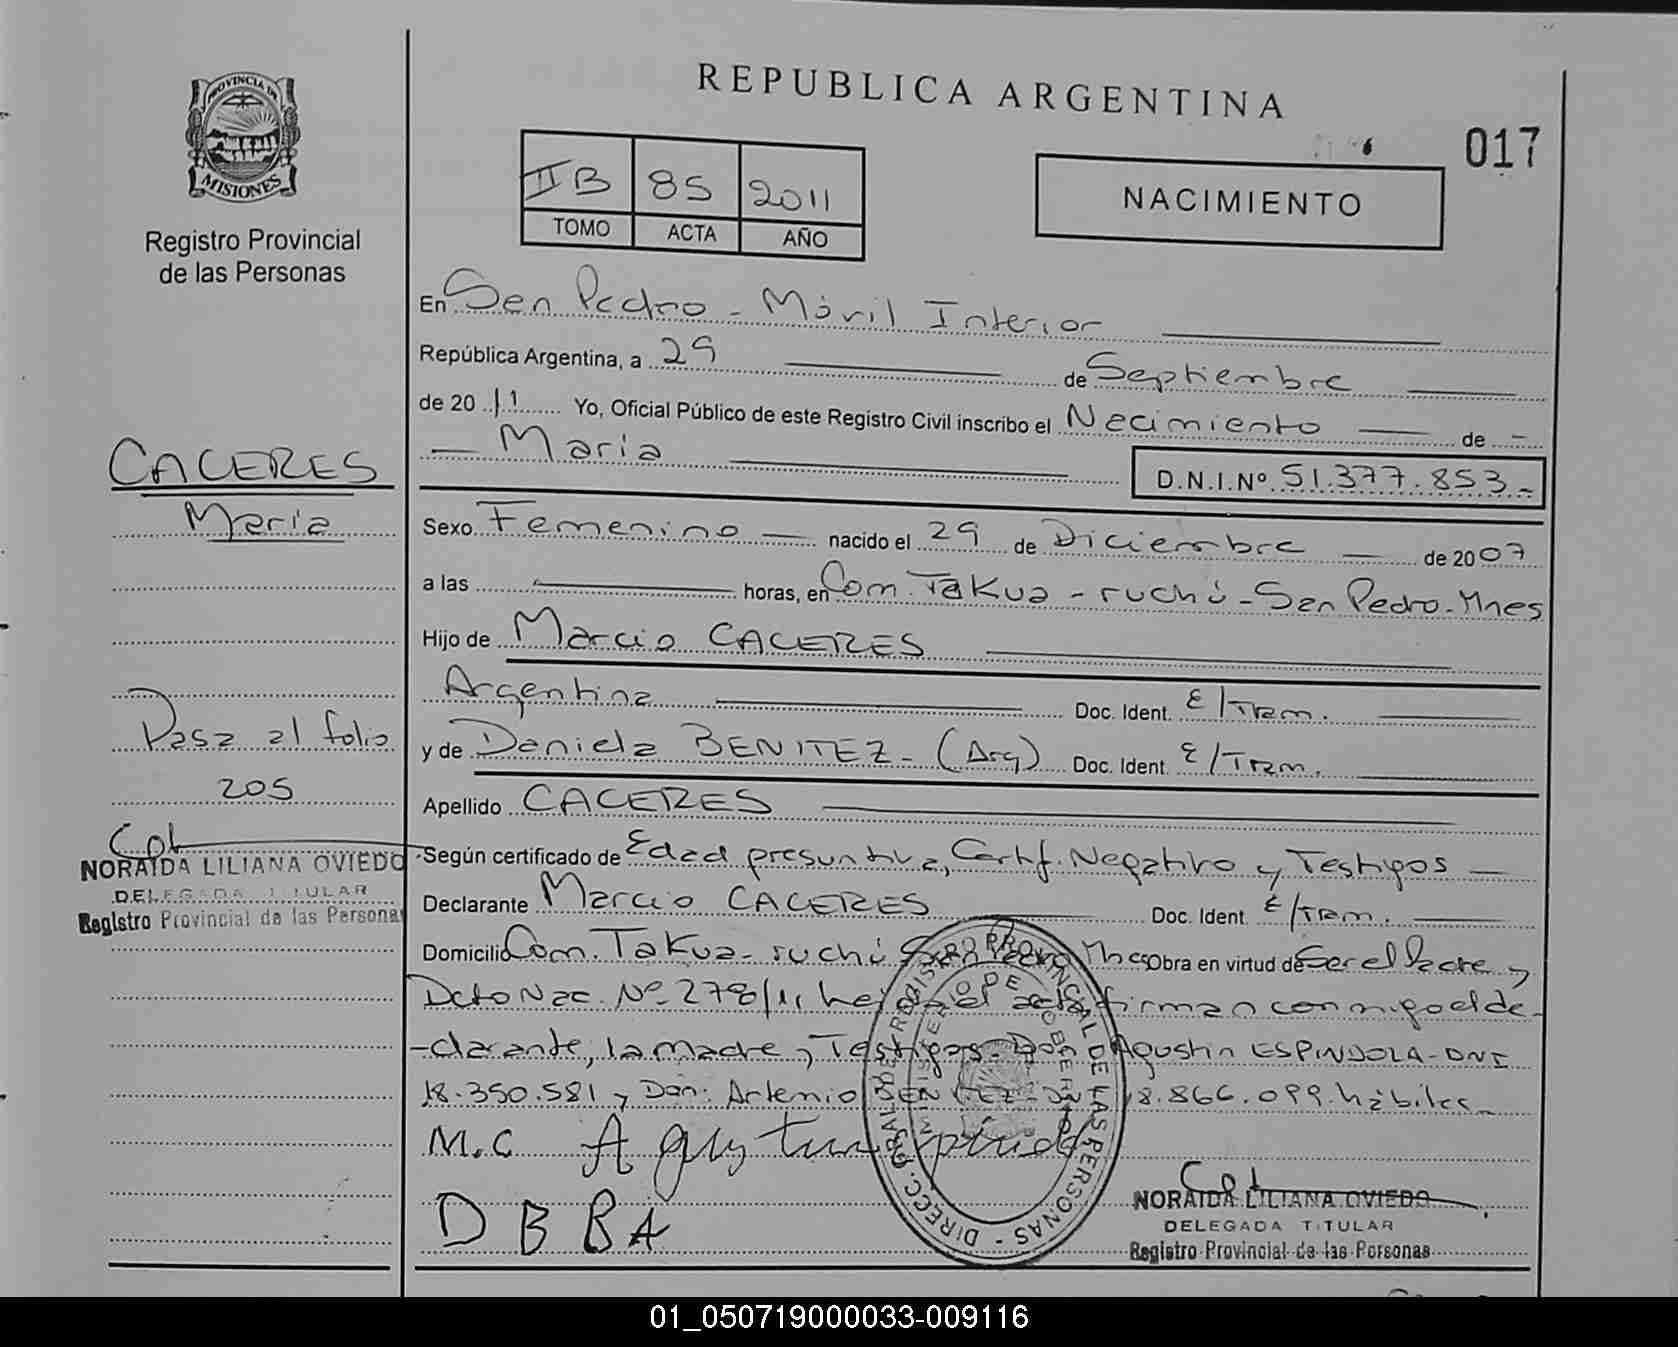 REPUBLICA ARGENTINA
017
PROVINCIA DE
MISIONES
Registro Provincial
de las Personas
IIB 85 2011
TOMO ACTA AÑO
NACIMIENTO
En San Pedro - Móvil Interior
República Argentina, a 29 de Septiembre
de 2011 Yo, Oficial Público de este Registro Civil inscribo el Nacimiento de
Maria
D.N.I.Nº 51.377.853-
CACERES
Maria
Sexo Femenino nacido el 29 de Diciembre de 2007
a las horas, en Com. Takua-ruchú - San Pedro - Mnes
Hijo de Marcio CACERES
Argentina Doc. Ident. E/Tram.
y de Daniela BENITEZ - (Arg) Doc. Ident. E/Tram.
Pasa al folio
205
Apellido CACERES
Según certificado de Edad presuntiva, Certif. Negativo y Testigos
NORAIDA LILIANA OVIEDO
DELEGADA TITULAR
Registro Provincial de las Personas
Declarante Marcio CACERES Doc. Ident. E/Tram.
Domicilio Com. Takua-ruchú San Pedro Mnes Obra en virtud de Ser el Padre y
Dcto Nac. Nº 278/11, firman conmigo el de-
-clarante, la madre y Testigos Don Agustin ESPINDOLA - DNI
18.350.581 y Don: Artemio BENITEZ - DNI 18.866.099. hábiles
M.C Agustin
D B BA
DIRECC. GRAL. DE REGISTRO PROVINCIAL DE LAS PERSONAS
MINISTERIO DE GOBIERNO
NORAIDA LILIANA OVIEDO
DELEGADA TITULAR
Registro Provincial de las Personas
01_050719000033-009116